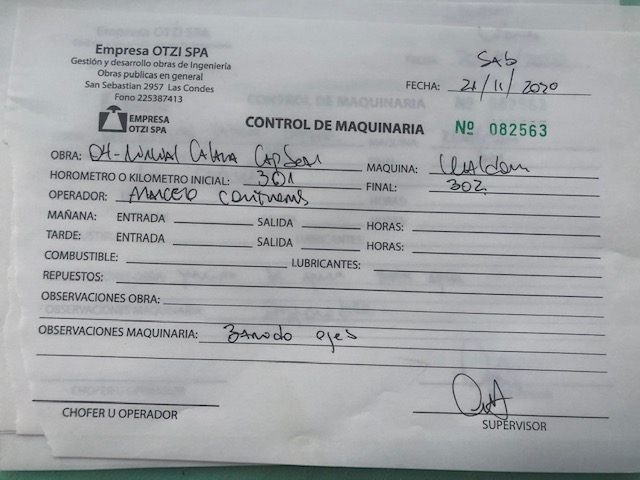 Empresa OTZI SPA
Gestión y desarrollo obras de Ingeniería
Obras publicas en general
San Sebastian 2957 Las Condes
Fono 225387413
SAB
FECHA: 21/11/2020
EMPRESA
OTZI SPA
CONTROL DE MAQUINARIA Nº 082563
OBRA: MAQUINA:
HOROMETRO O KILOMETRO INICIAL: 301 FINAL: 302
OPERADOR: Marcelo
MAÑANA: ENTRADA SALIDA HORAS:
TARDE: ENTRADA SALIDA HORAS:
COMBUSTIBLE: LUBRICANTES:
REPUESTOS:
OBSERVACIONES OBRA:
OBSERVACIONES MAQUINARIA: ejes
CHOFER U OPERADOR SUPERVISOR